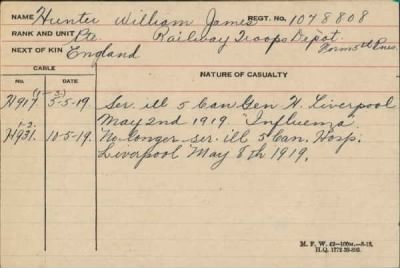 NAME Hunter William James REGT. NO. 1048808
RANK AND UNIT Pte. Railway Troops Depot.
NEXT OF KIN England
CABLE
NATURE OF CASUALTY
No. DATE
H917 5-5-19. Ser. ill 5 Can Gen H. Liverpool
May 2nd 1919 "Influenza"
H931. 10-5-19. No longer ser. ill 5 Can. Hosp.
Liverpool May 8th 1919.
M. F. W. 42
H.Q. 1772-39-893.